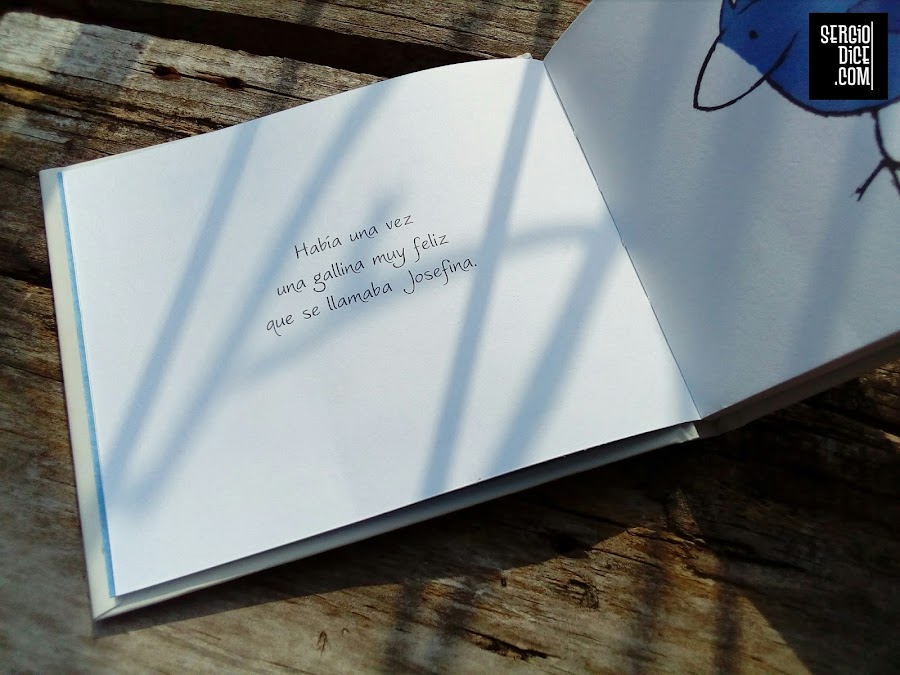 Había una vez
una gallina muy feliz
que se llamaba Josefina.
SERGIO
DICE
.COM